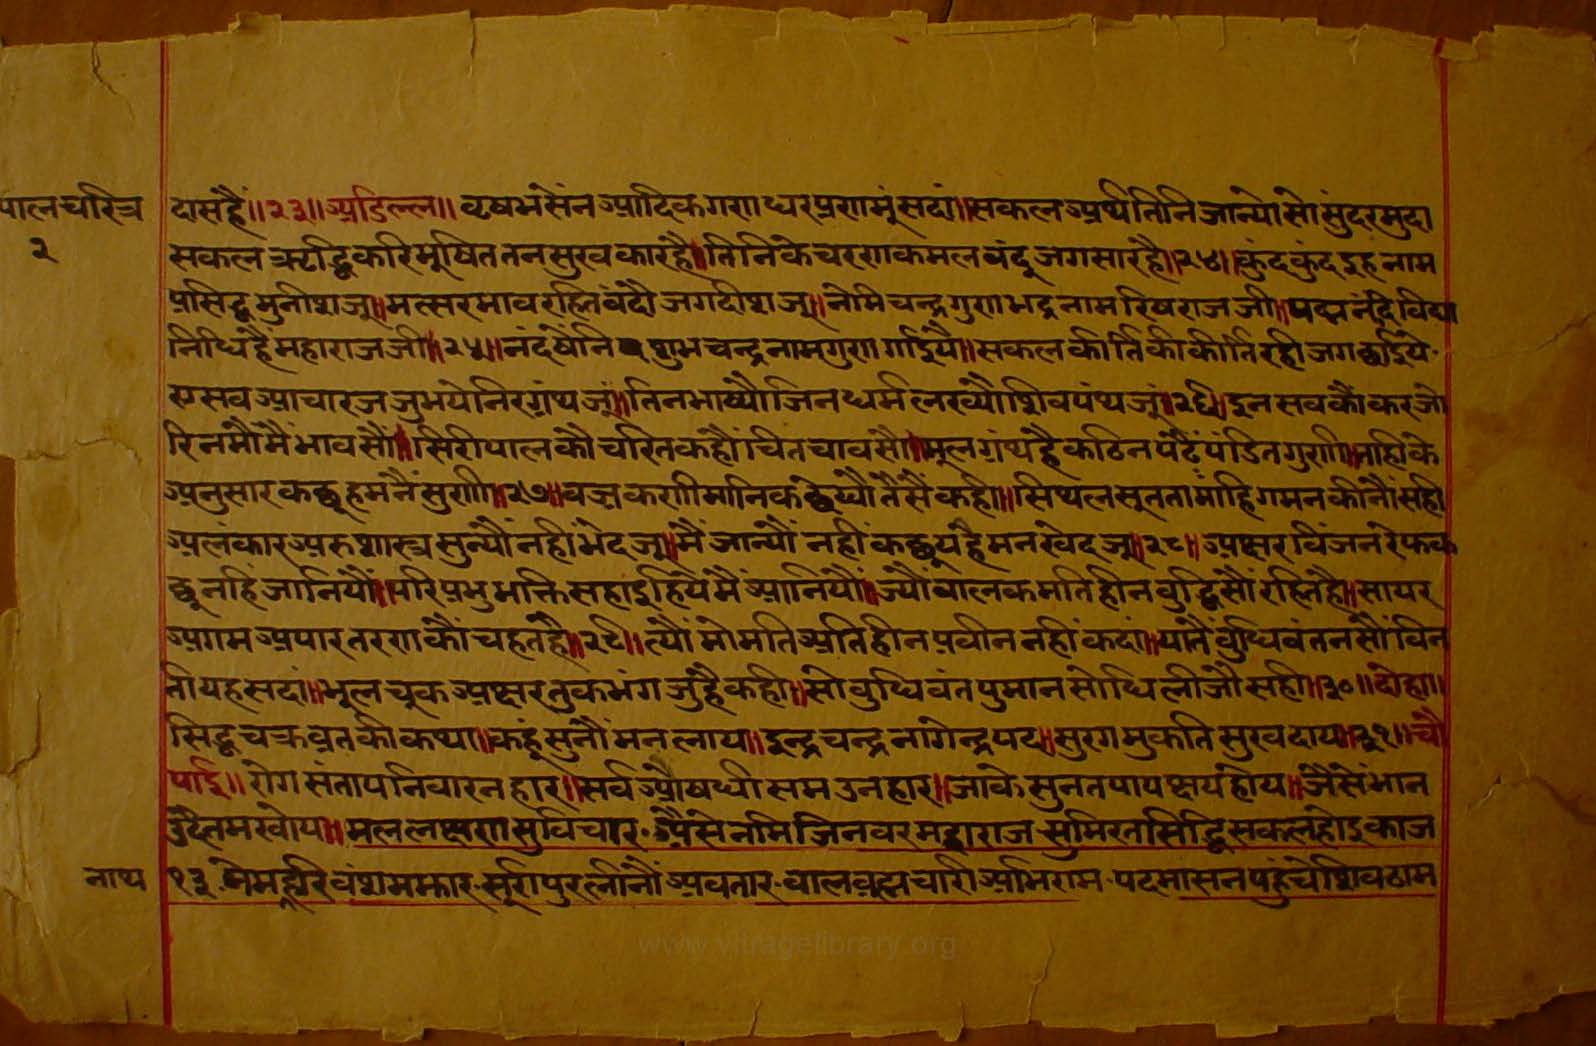 पालचरित्र
२
दासहैं॥२३॥अडिल्ल॥ वृषभसेंनआदिकगणधरप्रणमूंसदां॥सकलअर्थतिनिजान्योंसोसुंदरमुदा
सकलऋद्धिकरिभूषिततनसुखकारहै॥तिनिकेचरणकमलबंदूजगसारहै॥२४॥कुंदकुंदइहनाम
प्रसिद्धमुनीशजू॥मत्सरभावरहितबंदौजगदीशजू॥नेमिचन्द्रगुणभद्रनामरिषराजजी॥पद्मनंदिविद्या
निधिहैमहाराजजी॥२५॥नंदषेंनिशुभचन्द्रनामगुणगाईयै॥सकलकीर्तिकीकीर्तिरहीजगछाईये·
एसबआचारजजुभयेनिरग्रंथजूं॥तिनभाष्यौजिनधर्मलख्यौशिवपंथजूं॥२६॥इनसबकौंकरजो
रिनमौंमैंभावसौं॥सिरीपालकौचरितकहौंचितचावसौ॥मूलग्रंथहैकठिनपंढैपंडितगुणी॥ताहीके
अनुसारकछूहमनैंसुणी॥२७॥वज्रकणीमानिकछेद्यौतैसैंकही॥सिथलसूततामांहिगमनकीनौंसही
अलंकारअरुशास्त्रसुन्यौंनहींभेदजू॥मैंजान्यौंनहींकछूयहैमनखेदजू॥२८॥अक्षरविंजनरेफक
छूनहिंजानियौं॥परिप्रभुभक्तिसहाइहियेमैंआनियौं॥ज्यौंबालकमतिहीनबुद्धिसौंरहितहै॥सायर
अगमअपारतरणकौंचहतहै॥२९॥त्यौंमोमतिअतिहीनप्रवीननहींकदां॥यातैंबुधिवंतनसौंविन
तीयहसदां॥भूलचूकअक्षरतुकभंगजुहैकही॥सोबुधिवंतपुमानसोधिलीजौसही॥३०॥दोहा॥
सिद्धचक्रव्रतकीकथा॥कहूंसुनौंमनलाय॥इन्द्रचन्द्रनागेन्द्रपद॥सुरगमुकतिसुखदाय॥३१॥चौ
पाई॥ रोगसंतापनिवारनहार॥सर्वऔषधीसमउनहार॥जाकेसुनतपापक्षयहोय॥जैसेंभान
उदैतमखोय॥मललक्षणसुविचार·अैसेनमिजिनवरमहाराज·सुमिरतसिद्धिसकलहोइकाज
नाथ १३·नेमहरिवंशमझार·सूरीपुरलीनौंअवतार·बालब्रह्मचारीअभिराम·पदमासनपहुंचेशिवठाम
www.vitragelibrary.org